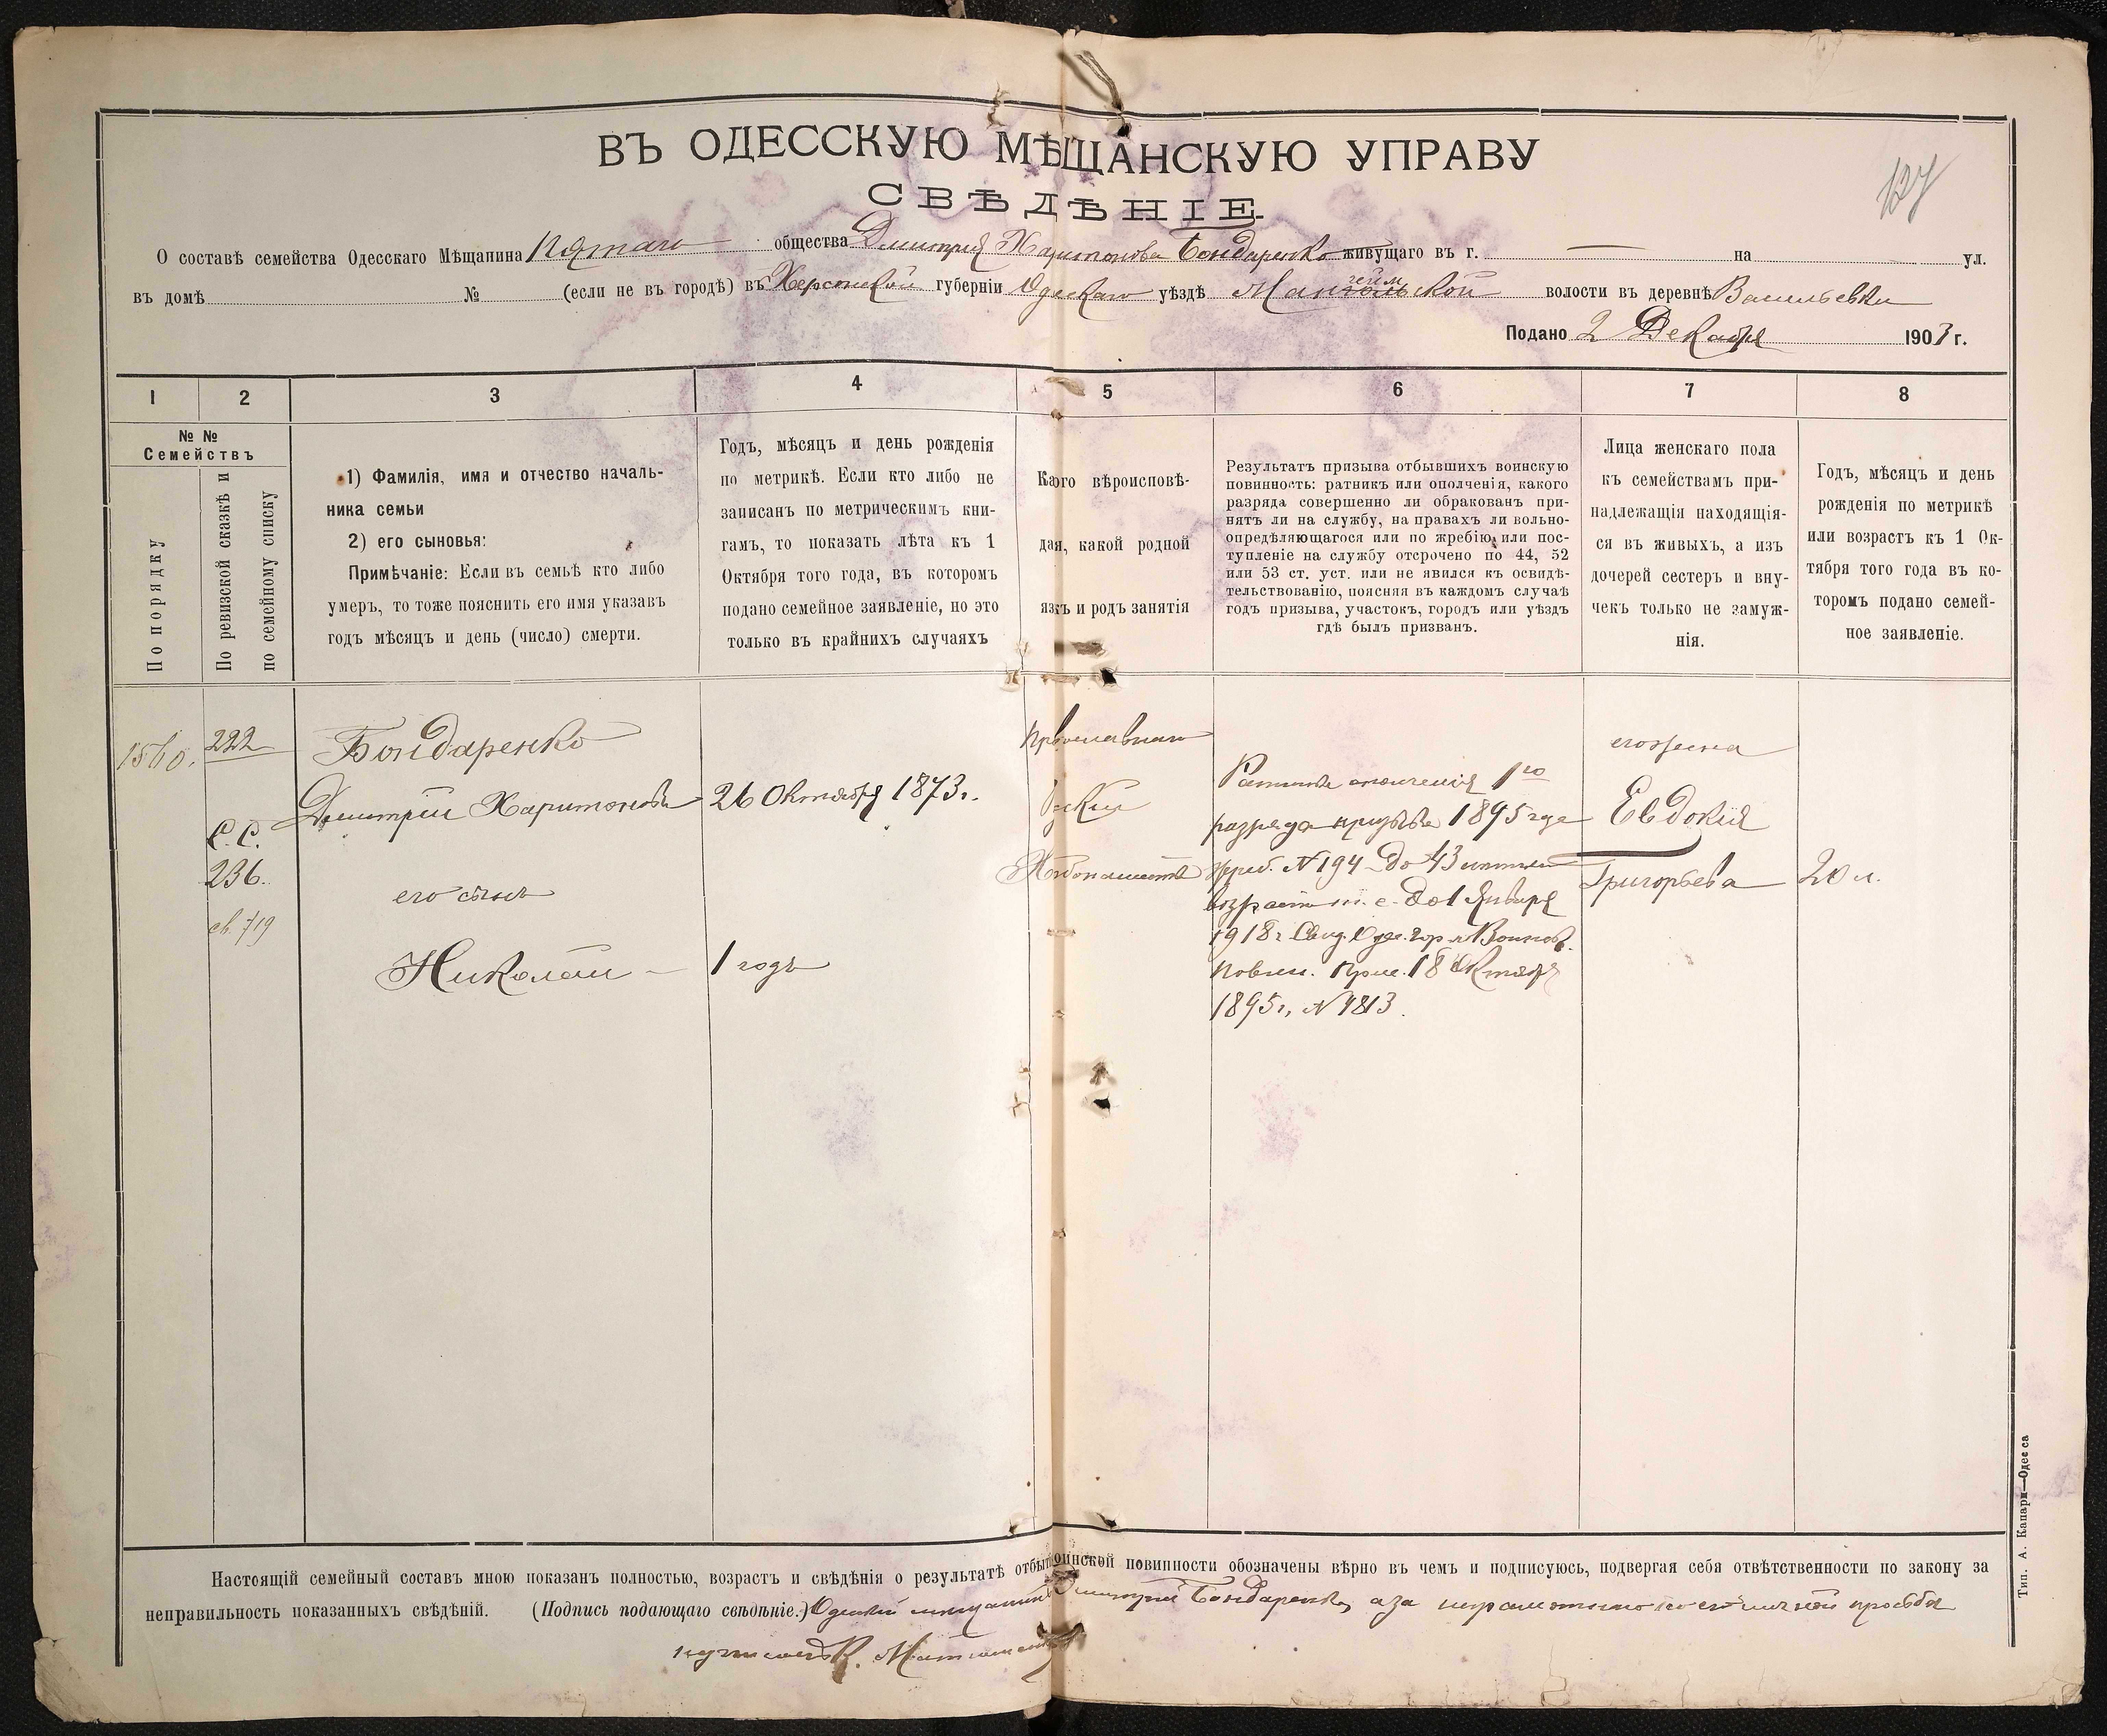 ВЪ ОДЕССКУЮ МѢЩАНСКУЮ УПРАВУ
СВѢДѢНІЕ.
127
О составѣ семейства Одесскаго Мѣщанина Пятаго общества Дмитрія Харитонова Бондаренко живущаго въ г. — на ул.
въ домѣ № (если не въ городѣ) въ Херсонской губерніи Одескаго уѣздѣ Мангеймской волости въ деревнѣ Васильевки
Подано 2 Декабря 1903 г.
1 2 3 4 5 6 7 8
№ №
Семействъ
По порядку
По ревизской сказкѣ и
по семейному списку
1) Фамилія, имя и отчество началь-
ника семьи
2) его сыновья:
Примѣчаніе: Если въ семьѣ кто либо
умеръ, то тоже пояснить его имя указавъ
годъ мѣсяцъ и день (число) смерти.
Годъ, мѣсяцъ и день рожденія
по метрикѣ. Если кто либо не
записанъ по метрическимъ кни-
гамъ, то показать лѣта къ 1
Октября того года, въ которомъ
подано семейное заявленіе, но это
только въ крайнихъ случаяхъ
Какого вѣроисповѣ-
данія, какой родной
языкъ и родъ занятія
Результатъ призыва отбывшихъ воинскую
повинность: ратникъ или ополченія, какого
разряда совершенно ли обракованъ при-
нятъ ли на службу, на правахъ ли вольно-
опредѣляющагося или по жребію или пос-
тупленіе на службу отсрочено по 44, 52
или 53 ст. уст. или не явился къ освидѣ-
тельствованію, поясняя въ каждомъ случаѣ
годъ призыва, участокъ, городъ или уѣздъ
гдѣ былъ призванъ.
Лица женскаго пола
къ семействамъ при-
надлежащія находящія-
ся въ живыхъ, а изъ
дочерей сестеръ и вну-
чекъ только не замуж-
нія.
Годъ, мѣсяцъ и день
рожденія по метрикѣ
или возрастъ къ 1 Ок-
тября того года въ ко-
торомъ подано семей-
ное заявленіе.
1560.
222
С. С.
236.
св. 719
Бондаренко
Дмитрій Харитоновъ
его сынъ
Николай
26 Октября 1873 г.
1 годъ
Православнаго
Рускій
Хлебопашество
Ратникъ ополченія 1го
разряда призыва 1895 года
жреб. № 194 до 43 летняго
возраста т. е. до 1 Января
1918 г. Свид. Одес. гор. по Воинск.
повин. Прис. 18 Октября
1895 г. № 4813.
его жена
Евдокія
Григорьева
20 л.
Настоящій семейный составъ мною показанъ полностью, возрастъ и свѣдѣнія о результатѣ отбыт воинской повинности обозначены вѣрно въ чемъ и подписуюсь, подвергая себя отвѣтственности по закону за
неправильность показанныхъ свѣдѣній. (Подпись подающаго свѣдѣніе.) Одескій мещанинъ Дмитрій Бондаренко, а за неграмотного по его личной просьбѣ
Тип. А. Капари—Одесса